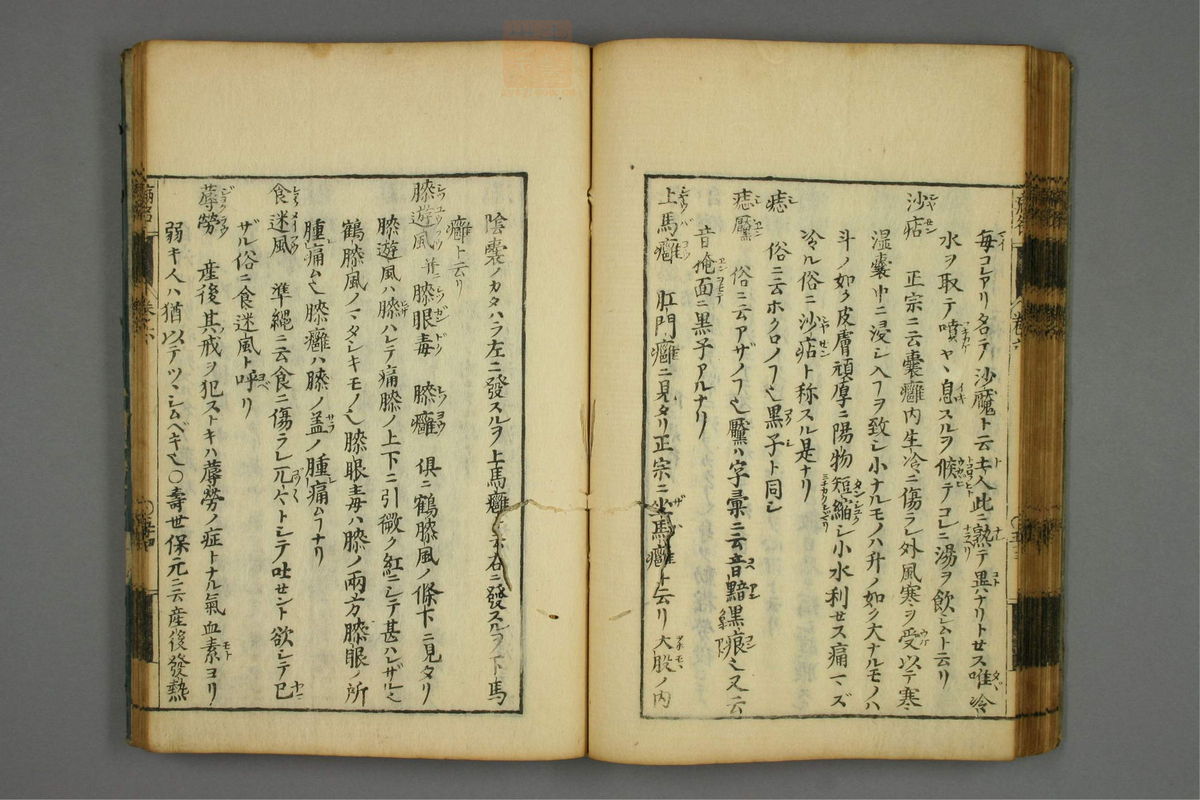 毎コレアリ名テ沙魘ト云土人此ニ熟テ異ナリトセス唯冷
水ヲ取テ噴ヤヽ息スルヲ候テコレニ湯ヲ飲シムト云リ
沙㾌 正宗ニ云囊癰内生冷ニ傷ラレ外風寒ヲ受以テ寒
湿囊中ニ浸シ入フヲ致シ小ナルモノハ升ノ如ク大ナルモノハ
斗ノ如ク皮膚頑厚ニ陽物短縮シ小水利せス痛マズ
冷ル俗ニ沙㾌ト称スル是ナリ
痣 俗ニ云ホクロノフ也黒子ト同シ
痣黶 俗ニ云アザノフ也黶ハ字彙ニ云音黯黒痕也又云
音掩面ニ黒子アルナリ
上馬癰 肛門癰ニ見タリ正宗ニ坐馬癰ト云リ大股ノ内
陰囊ノカタハラ左ニ發スルヲ上馬癰ト云右ニ發スルヲ下馬
癰ト云リ
膝遊風并ニ膝眼毒 膝癰 俱ニ鶴膝風ノ條下ニ見タリ
膝遊風ハ膝ハレテ痛膝ノ上下ニ引微ク紅ニシテ甚ハレザル也
鶴膝風ノマタシキモノ也膝眼毒ハ膝ノ兩方膝眼ノ所
腫痛ム也膝癰ハ膝ノ盖ノ腫痛ムフナリ
食迷風 準繩ニ云食ニ傷ラレ兀々トシテ吐せント欲シテ已
ザル俗ニ食迷風ト呼リ
蓐勞 産後其戒ヲ犯ストキハ蓐勞ノ症トナル氣血素ヨリ
弱キ人ハ猶以テツヽシムベキ也○壽世保元ニ云産後發熱